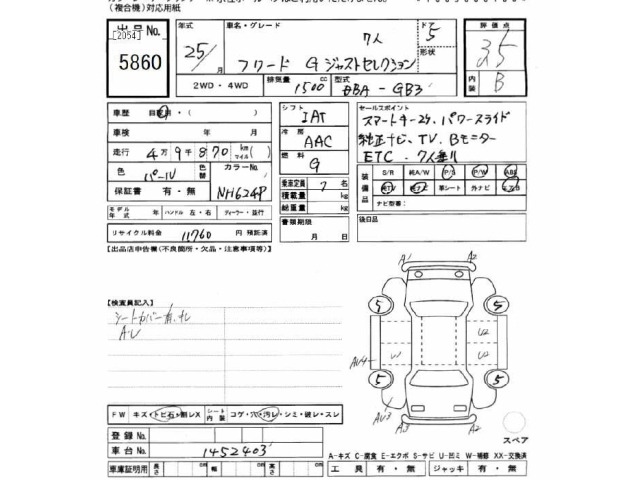 (複合機)対応用紙
出品 No.
[2054]
5860
年式
25/
月
車名・グレード
7人
フリード G ジャストセレクション
ドア
5
形状
評価点
3.5
内装
B
2WD・4WD
排気量
1500 cc
型式
DBA-GB3
車歴
自家用・( )
車検 年 月
走行 4万9千870 km
マイル
色替
パール
カラーNo.
NH624P
保証書 有・無
モデル年式 年
ハンドル 左・右
ディーラー・並行
リサイクル料金 11760 円 預託済
シフト
IAT
冷房
AAC
燃料
G
乗車定員 7 名
積載量 kg
総重量 kg
書類期限
月 日
セールスポイント
スマートキー2ケ、パワースライド
純正ナビ、TV、Bモニター
ETC、7人乗り
装備品
S/R 純A/W P/S P/W ABS
純TV 純ナビ 革シート 外ナビ エアB
ナビ型番:
後日品
【出品店申告機(不良箇所・欠品・注意事項等)】
【検査員記入】
シートカバー有、ナレ
A・U
FW キズ・トビ石・割レX
シート内装
コゲ・穴・汚レ・シミ・破レ・スレ
登録 No.
車台 No.
1452403
車庫証明用
長さ cm
幅 cm
高さ cm
A1
A2
5
5
U2
W
U2
AU4
5
5
AU3
A2
A2
スペア
A-キズ C-腐食 E-エクボ S-サビ U-凹ミ W-補修 XX-交換済
工具 有・無
ジャッキ 有・無